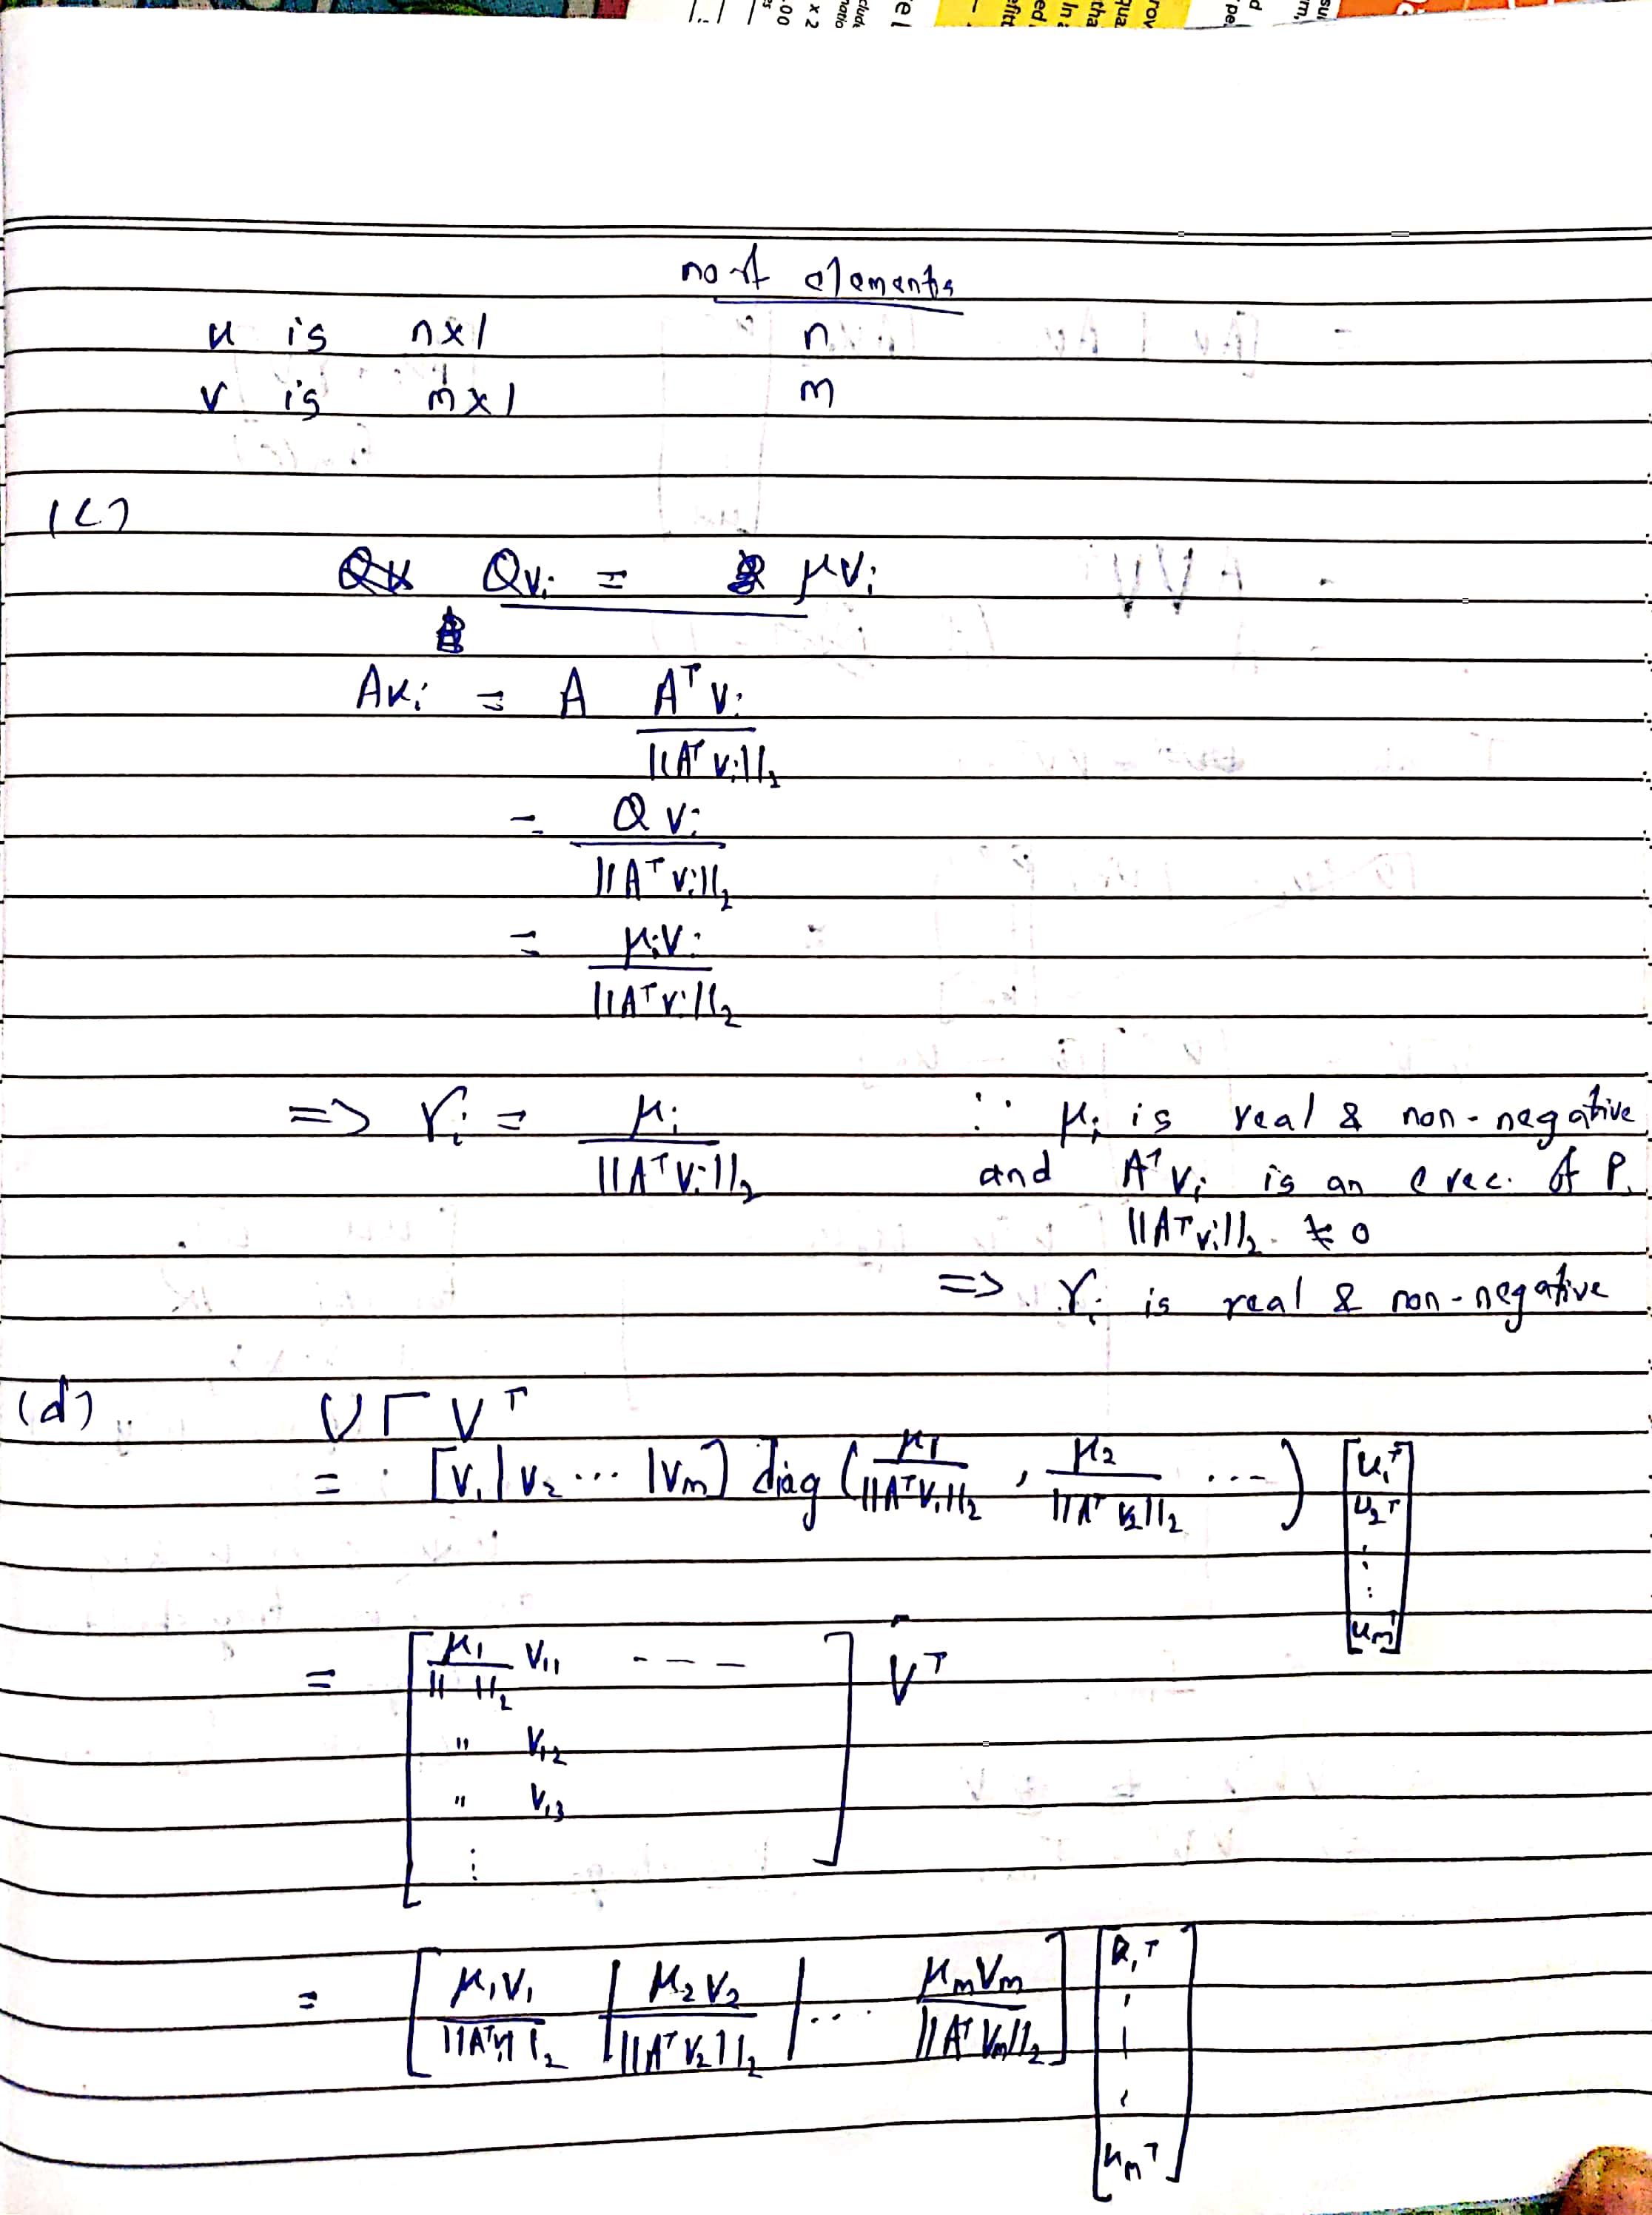 no of elements
u is n×1 n
v is m×1 m
(c)
Qvᵢ = μvᵢ
Auᵢ = A Aᵀvᵢ / ||Aᵀvᵢ||₂
= Qvᵢ / ||Aᵀvᵢ||₂
= μᵢvᵢ / ||Aᵀvᵢ||₂
=> γᵢ = μᵢ / ||Aᵀvᵢ||₂ ∵ μᵢ is real & non-negative
and Aᵀvᵢ is an e vec. of P.
||Aᵀvᵢ||₂ ≠ 0
=> γᵢ is real & non-negative
(d) U Γ Vᵀ
= [v₁ | v₂ ... | vm] diag (μ₁ / ||Aᵀv₁||₂ , μ₂ / ||Aᵀv₂||₂ ...) [u₁ᵀ
u₂ᵀ
⋮
umᵀ]
= [μ₁ / || ||₂ v₁₁ - - - ] Vᵀ
" v₁₂
" v₁₃
⋮
= [μ₁v₁ / ||Aᵀv₁||₂ | μ₂v₂ / ||Aᵀv₂||₂ | ... μmvm / ||Aᵀvm||₂] [u₁ᵀ
⋮
umᵀ]